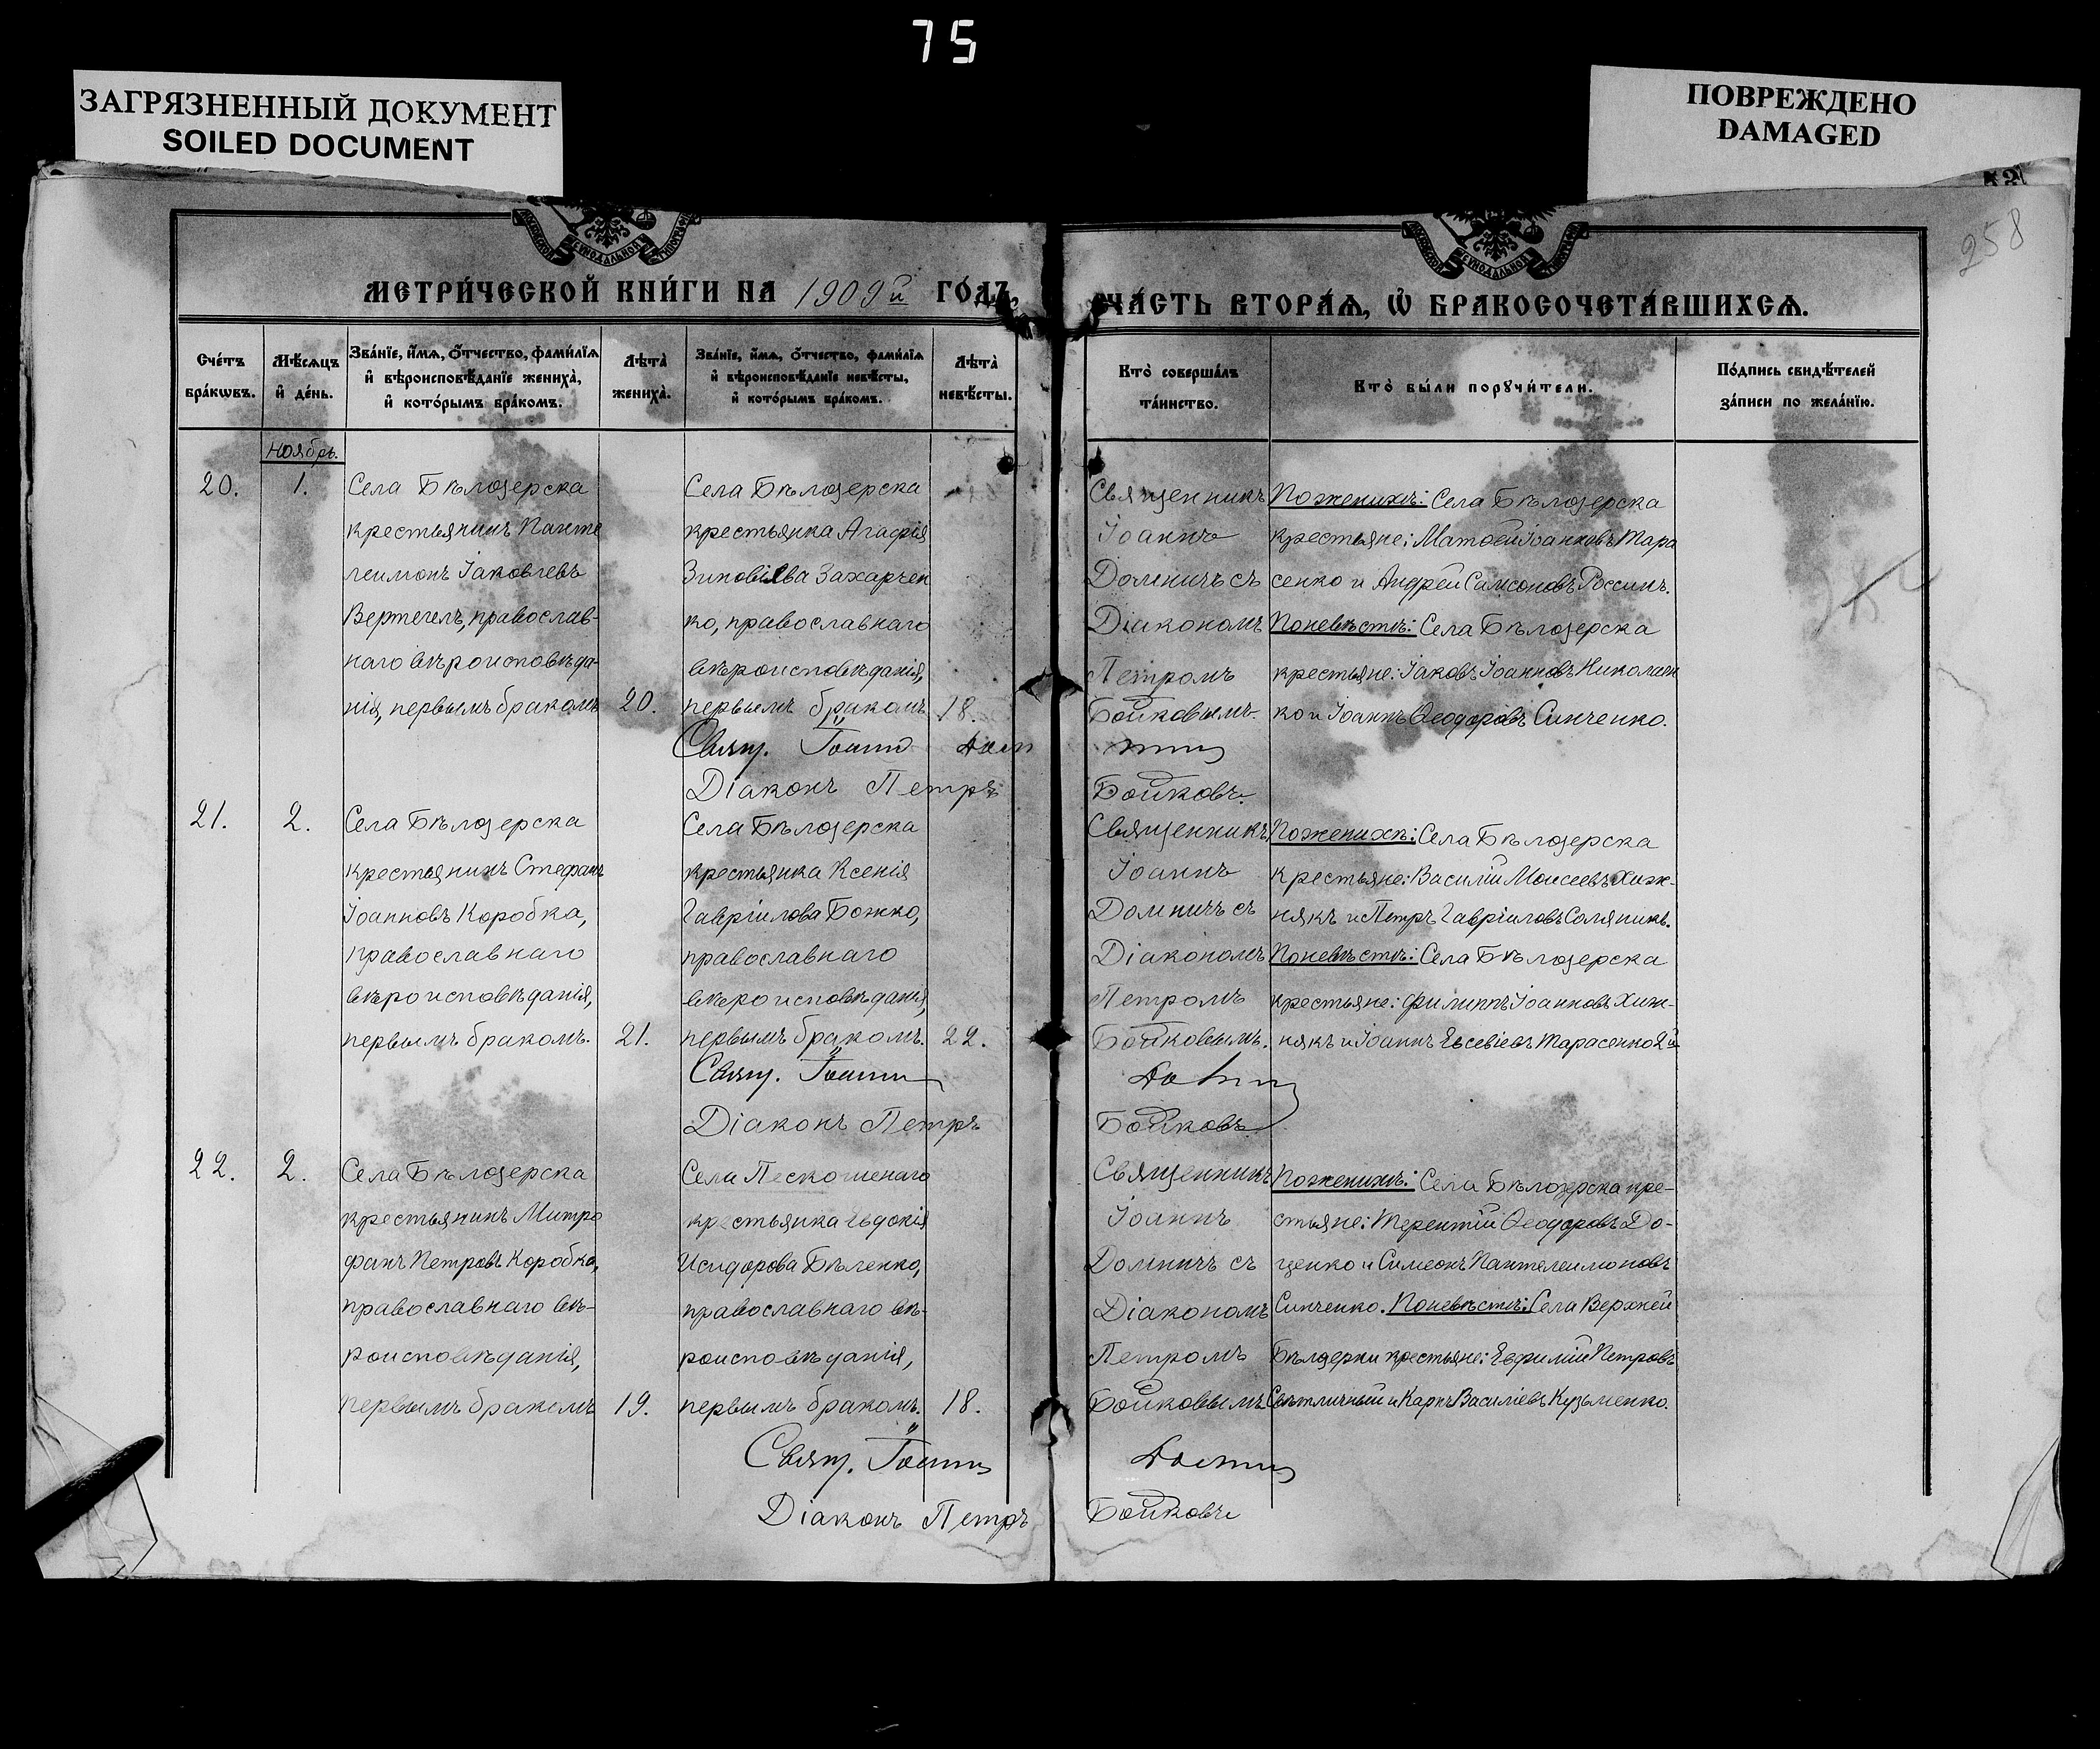 75
ЗАГРЯЗНЕННЫЙ ДОКУМЕНТ
SOILED DOCUMENT
ПОВРЕЖДЕНО
DAMAGED
258
МЕТРИ́ЧЕСКОЙ КНИ́ГИ НА 1909й ГО́ДЪ
ЧА́СТЬ ВТОРА́Ѧ, Ѡ҆ БРАКОСОЧЕТА́ВШИХСѦ.
Сче́тъ бра́кѡвъ.
Мѣ́сѧцъ и҆ де́нь.
Зва́нїе, и҆́мѧ, ѻ҆́тчество, фами́лїѧ
и҆ вѣроисповѣ́данїе жениха̀,
и҆ кото́рымъ бра́комъ.
Лѣ́та̀ жениха̀.
Зва́нїе, и҆́мѧ, ѻ҆́тчество, фами́лїѧ
и҆ вѣроисповѣ́данїе невѣ́сты,
и҆ кото́рымъ бра́комъ.
Лѣ́та̀ невѣ́сты.
Кто̀ соверша́лъ
та́инство.
Кто̀ бы́ли порꙋчи́тели.
По́дпись свидѣ́телей
за́писи по жела́нїю.
Ноябрь.
20.
1.
Села Бѣлозерска
крестьянинъ Панте
леимонъ Іаковлевъ
Вертегелъ, православ-
наго вѣроисповѣда-
нія, первымъ бракомъ
20.
Села Бѣлозерска
крестьянка Агафія
Зиновіева Захарчен
ко, православнаго
вѣроисповѣданія,
первымъ бракомъ
18.
Священникъ
Іоаннъ
Домничъ съ
Діакономъ
Петромъ
Бойковымъ.
По женихѣ: Села Бѣлозерска
крестьяне: Матѳей Іоанновъ Тара
сенко и Андрей Самсоновъ Россихъ.
По невѣстѣ: Села Бѣлозерска
крестьяне: Іаковъ Іоанновъ Николаен
ко и Іоаннъ Ѳеодоровъ Синченко.
Свящ. Іоаннъ
Діаконъ Петръ Бойковъ.
21.
2.
Села Бѣлозерска
крестьянинъ Стефанъ
Іоанновъ Коробка,
православнаго
вѣроисповѣданія,
первымъ бракомъ.
21.
Села Бѣлозерска
крестьянка Ксенія
Гавріилова Божко,
православнаго
вѣроисповѣданія,
первымъ бракомъ.
22.
Священникъ
Іоаннъ
Домничъ съ
Діакономъ
Петромъ
Бойковымъ.
По женихѣ: Села Бѣлозерска
крестьяне: Василій Моисеевъ Хиж-
някъ и Петръ Гавріиловъ Соляникъ.
По невѣстѣ: Села Бѣлозерска
крестьяне: Филиппъ Іоанновъ Хиж-
някъ и Іоаннъ Евсевіевъ Тарасенко 2й
Свящ. Іоаннъ
Діаконъ Петръ Бойковъ
22.
2.
Села Бѣлозерска
крестьянинъ Митро
фанъ Петровъ Коробка,
православнаго вѣ-
роисповѣданія,
первымъ бракомъ
19.
Села Пескошенаго
крестьянка Евдокія
Исидорова Бѣленко,
православнаго вѣ-
роисповѣданія,
первымъ бракомъ.
18.
Священникъ
Іоаннъ
Домничъ съ
Діакономъ
Петромъ
Бойковымъ
По женихѣ: Села Бѣлозерска кре-
стьяне: Терентій Ѳеодоровъ До-
ценко и Симеонъ Пантелеимоновъ
Синченко. По невѣстѣ: Села Верхней
Бѣлозерки крестьяне: Евфимій Петровъ
Свѣтличный и Карпъ Василіевъ Кузьменко.
Свящ. Іоаннъ
Діаконъ Петръ Бойковъ